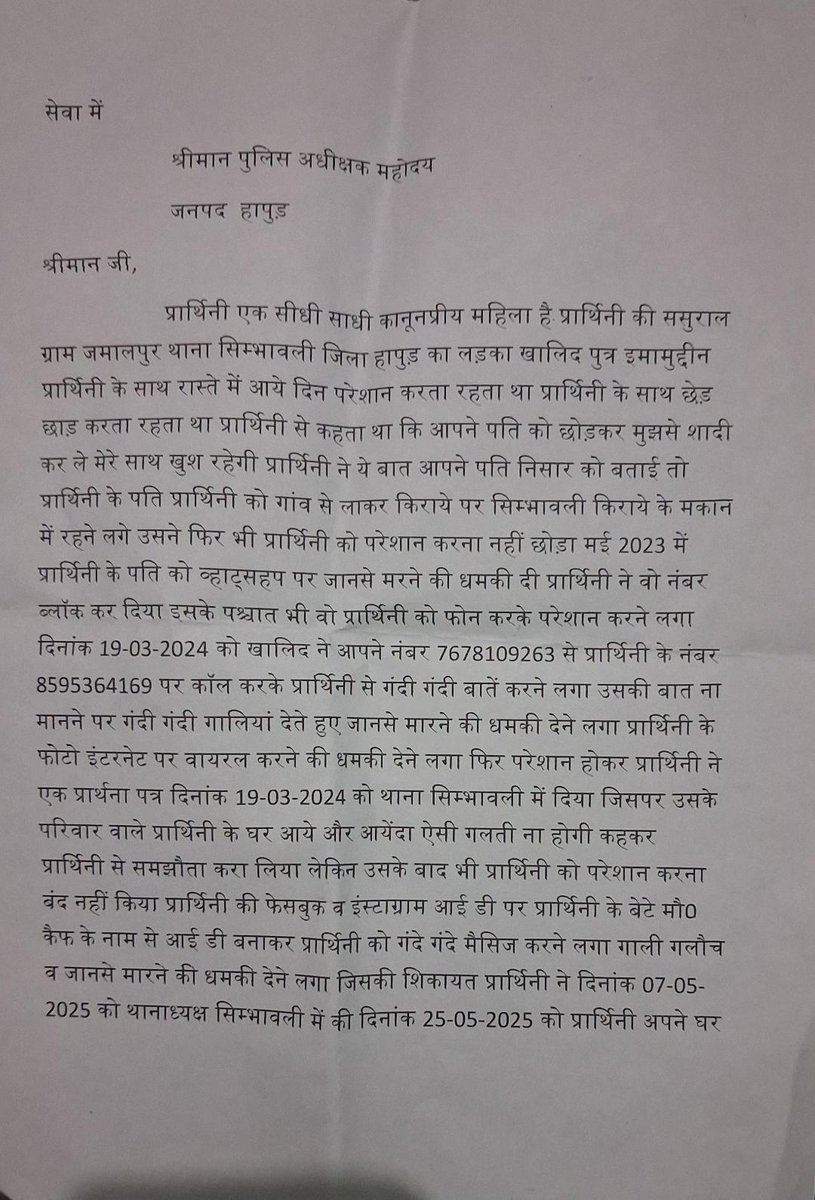 सेवा में
श्रीमान पुलिस अधीक्षक महोदय
जनपद हापुड़
श्रीमान जी,
प्रार्थिनी एक सीधी साधी कानूनप्रीय महिला है प्रार्थिनी की ससुराल
ग्राम जमालपुर थाना सिम्भावली जिला हापुड़ का लड़का खालिद पुत्र इमामुद्दीन
प्रार्थिनी के साथ रास्ते में आये दिन परेशान करता रहता था प्रार्थिनी के साथ छेड़
छाड़ करता रहता था प्रार्थिनी से कहता था कि आपने पति को छोड़कर मुझसे शादी
कर ले मेरे साथ खुश रहेगी प्रार्थिनी ने ये बात आपने पति निसार को बताई तो
प्रार्थिनी के पति प्रार्थिनी को गांव से लाकर किराये पर सिम्भावली किराये के मकान
में रहने लगे उसने फिर भी प्रार्थिनी को परेशान करना नहीं छोड़ा मई 2023 में
प्रार्थिनी के पति को व्हाट्सहप पर जानसे मरने की धमकी दी प्रार्थिनी ने वो नंबर
ब्लॉक कर दिया इसके पश्चात भी वो प्रार्थिनी को फोन करके परेशान करने लगा
दिनांक 19-03-2024 को खालिद ने आपने नंबर 7678109263 से प्रार्थिनी के नंबर
8595364169 पर कॉल करके प्रार्थिनी से गंदी गंदी बातें करने लगा उसकी बात ना
मानने पर गंदी गंदी गालियां देते हुए जानसे मारने की धमकी देने लगा प्रार्थिनी के
फोटो इंटरनेट पर वायरल करने की धमकी देने लगा फिर परेशान होकर प्रार्थिनी ने
एक प्रार्थना पत्र दिनांक 19-03-2024 को थाना सिम्भावली में दिया जिसपर उसके
परिवार वाले प्रार्थिनी के घर आये और आयेंदा ऐसी गलती ना होगी कहकर
प्रार्थिनी से समझौता करा लिया लेकिन उसके बाद भी प्रार्थिनी को परेशान करना
वंद नहीं किया प्रार्थिनी की फेसबुक व इंस्टाग्राम आई डी पर प्रार्थिनी के बेटे मौ0
कैफ के नाम से आई डी बनाकर प्रार्थिनी को गंदे गंदे मैसिज करने लगा गाली गलौच
व जानसे मारने की धमकी देने लगा जिसकी शिकायत प्रार्थिनी ने दिनांक 07-05-
2025 को थानाध्यक्ष सिम्भावली में की दिनांक 25-05-2025 को प्रार्थिनी अपने घर